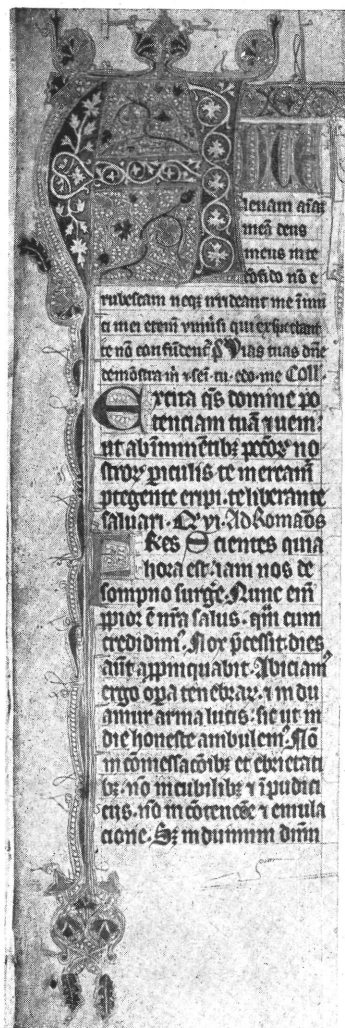 A D TE
leuam aīaz
meā deus
meus in te
cōfido nō e
rubescam neqz irrideant me īimi
ci mei etenī vniūsi qui te exspectant
te nō confūdent᷑ p̄s Vias tuas dn̄e
demōstra m̄ ⁊ sēi. tu. edo. me Coll.
Excita qs domine po
tenciam tuā ⁊ veni.
ut ab iminētibꝫ pccōꝝ no
stroꝝ piculis te meream᷑
ptegente eripi. te liberante
saluari. Ad Romāos
Fres Scientes quia
hora est iam nos de
sompno surgē. Nunc eī
ppior ē nr̄a salus. qm̄ cum
credidim᷒. Nox p̄cessit. dies
aūt appinquabit. Abiciam᷒
ergo opa tenebraꝝ. ⁊ indu
amur arma lucis. sic ut in
die honeste ambulem᷒. Nō
in cōmessacōibꝫ et ebrietati
bꝫ. nō in cubilibꝫ ⁊ īpudici
ciis. nō in cōtencōe ⁊ emula
cione. Sꝫ induimini dn̄m